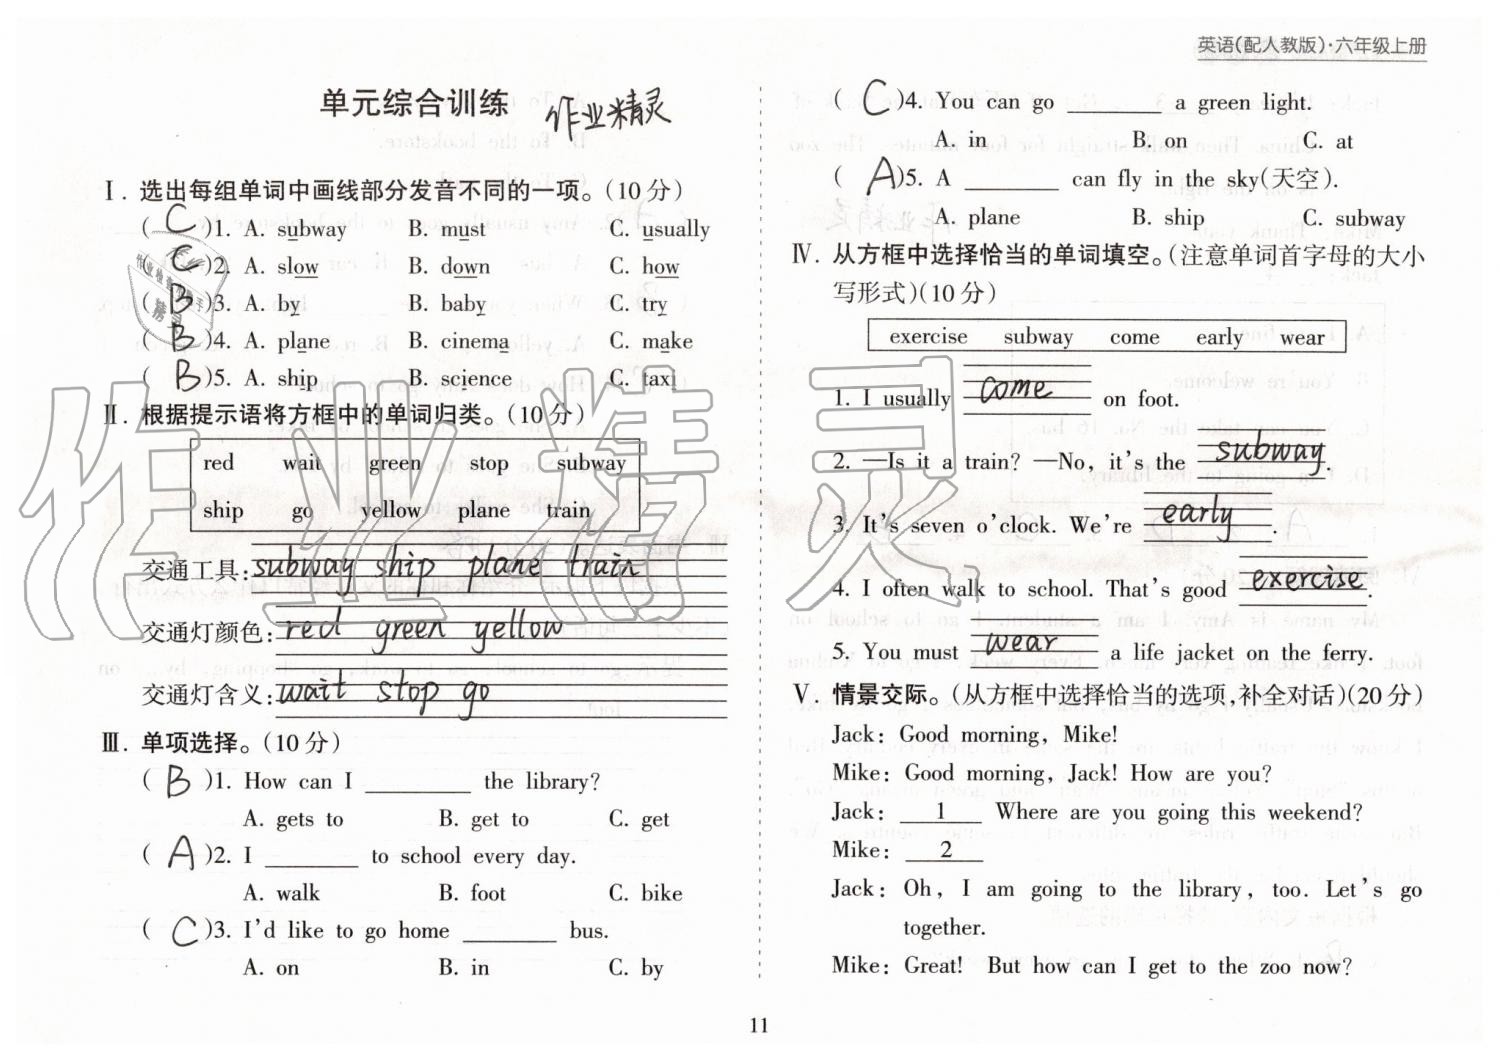 英语(配人教版)·六年级上册
单元综合训练 作业精灵
Ⅰ. 选出每组单词中画线部分发音不同的一项。(10分)
( C )1. A. subway B. must C. usually
( C )2. A. slow B. down C. how
( B )3. A. by B. baby C. try
( B )4. A. plane B. cinema C. make
( B )5. A. ship B. science C. taxi
Ⅱ. 根据提示语将方框中的单词归类。(10分)
red wait green stop subway
ship go yellow plane train
交通工具: subway ship plane train
交通灯颜色: red green yellow
交通灯含义: wait stop go
Ⅲ. 单项选择。(10分)
( B )1. How can I ________ the library?
A. gets to B. get to C. get
( A )2. I ________ to school every day.
A. walk B. foot C. bike
( C )3. I'd like to go home ________ bus.
A. on B. in C. by
( C )4. You can go ________ a green light.
A. in B. on C. at
( A )5. A ________ can fly in the sky(天空).
A. plane B. ship C. subway
Ⅳ. 从方框中选择恰当的单词填空。(注意单词首字母的大小
写形式)(10分)
exercise subway come early wear
1. I usually come on foot.
2. —Is it a train? —No, it's the subway.
3. It's seven o'clock. We're early.
4. I often walk to school. That's good exercise.
5. You must wear a life jacket on the ferry.
Ⅴ. 情景交际。(从方框中选择恰当的选项,补全对话)(20分)
Jack: Good morning, Mike!
Mike: Good morning, Jack! How are you?
Jack: 1 Where are you going this weekend?
Mike: 2
Jack: Oh, I am going to the library, too. Let's go
together.
Mike: Great! But how can I get to the zoo now?
11
作业精灵